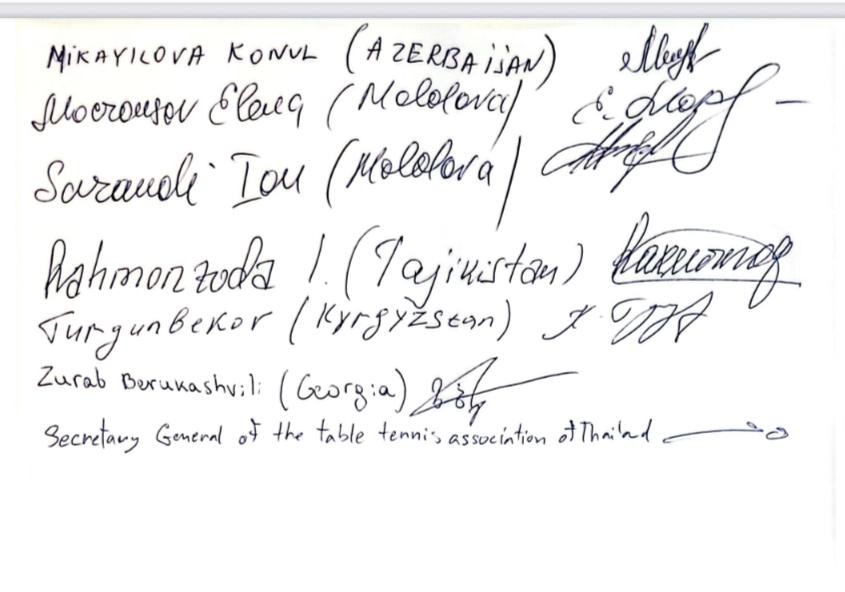 MIKAYILOVA KONUL (AZERBAIJAN)
Mocrousov Elena (Moldova)
Sarandi Ion (Moldova)
Rahmonzoda I. (Tajikistan)
Turgun Bekor (Kyrgyžstan)
Zurab Berukashvili (Georgia)
Secretary General of the table tennis association of Thailad